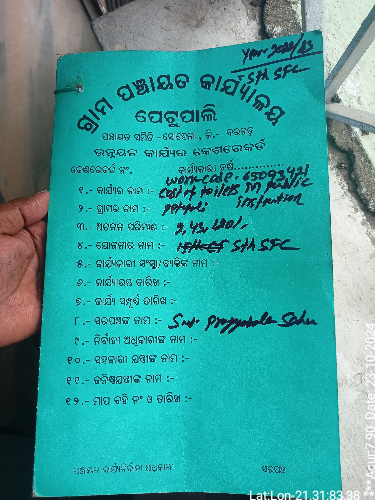 Year-2022/23
5th SFC
ଗ୍ରାମ ପଞ୍ଚାୟତ କାର୍ଯ୍ୟାଳୟ
ପେଟୁପାଲି
ପଞ୍ଚାୟତ ସମିତି - ସୋହେଲା, ଜି.- ବରଗଡ଼
ଉନ୍ନୟନ କାର୍ଯ୍ୟର କେଶରେକର୍ଡ
କେଶରେକର୍ଡ ନଂ କାର୍ଯ୍ୟକାରୀ ବର୍ଷ..............
work code - 65093421
୧.- କାର୍ଯ୍ୟର ନାମ :- Cost of toilets in public
Instution
୨.- ଗ୍ରାମର ନାମ :- Petupali
୩.- ଅଟକଳ ପରିମାଣ :- 2,43,420/-
୪.- ଯୋଜନାର ନାମ :- 5th SFC
୫.- କାର୍ଯ୍ୟକାରୀ ସଂସ୍ଥା/ବ୍ୟକ୍ତିଙ୍କ ନାମ :-
୬.- କାର୍ଯ୍ୟାରମ୍ଭ ତାରିଖ :-
୭.- କାର୍ଯ୍ୟ ସମ୍ପୂର୍ଣ୍ଣ ତାରିଖ :-
୮.- ସରପଞ୍ଚଙ୍କ ନାମ :- Smt Sahu
୯.- ନିର୍ବାହୀ ଅଧିକାରୀଙ୍କ ନାମ :-
୧୦.- ସହକାରୀ ଯନ୍ତ୍ରୀଙ୍କ ନାମ :-
୧୧.- କନିଷ୍ଠଯନ୍ତ୍ରୀଙ୍କ ନାମ :-
୧୨.- ମାପ ବହି ନଂ ଓ ତାରିଖ :-
ପଞ୍ଚାୟତ କାର୍ଯ୍ୟନିର୍ବାହୀ ଅଧିକାରୀ ସରପଞ୍ଚ
Date: 23.10.2024
Lat:Lon-21.31:83.38